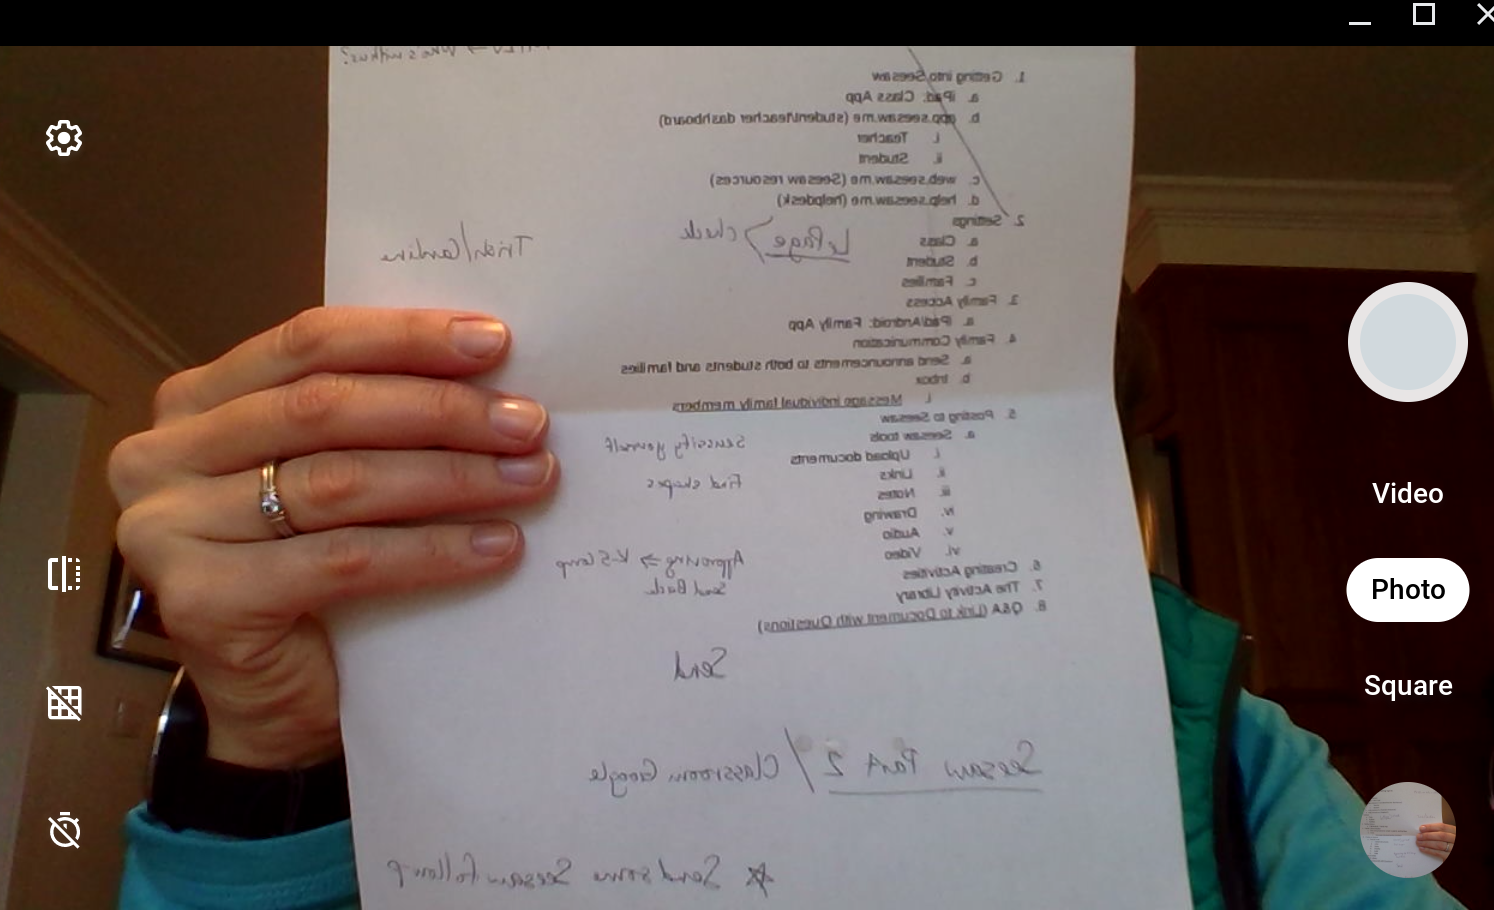 Who's with us?
1. Getting into Seesaw
a. iPad: Class App
b. app.seesaw.me (student/teacher dashboard)
i. Teacher
ii. Student
c. web.seesaw.me (Seesaw resources)
d. help.seesaw.me (helpdesk)
2. Settings
a. Class
LePage > check
Trish/Caroline
b. Student
c. Families
3. Family Access
a. iPad/Android: Family App
4. Family Communication
a. Send announcements to both students and families
b. Inbox
i. Message individual family members
5. Posting to Seesaw
a. Seesaw tools
i. Upload documents
ii. Links
Find shapes
iii. Notes
iv. Drawing
v. Audio
vi. Video
Approving →
Send Back
6. Creating Activities
7. The Activity Library
8. Q&A (Link to Document with Questions)
Send
Seesaw Part 2 / Classroom Google
Send some Seesaw follow-up
Video
Photo
Square